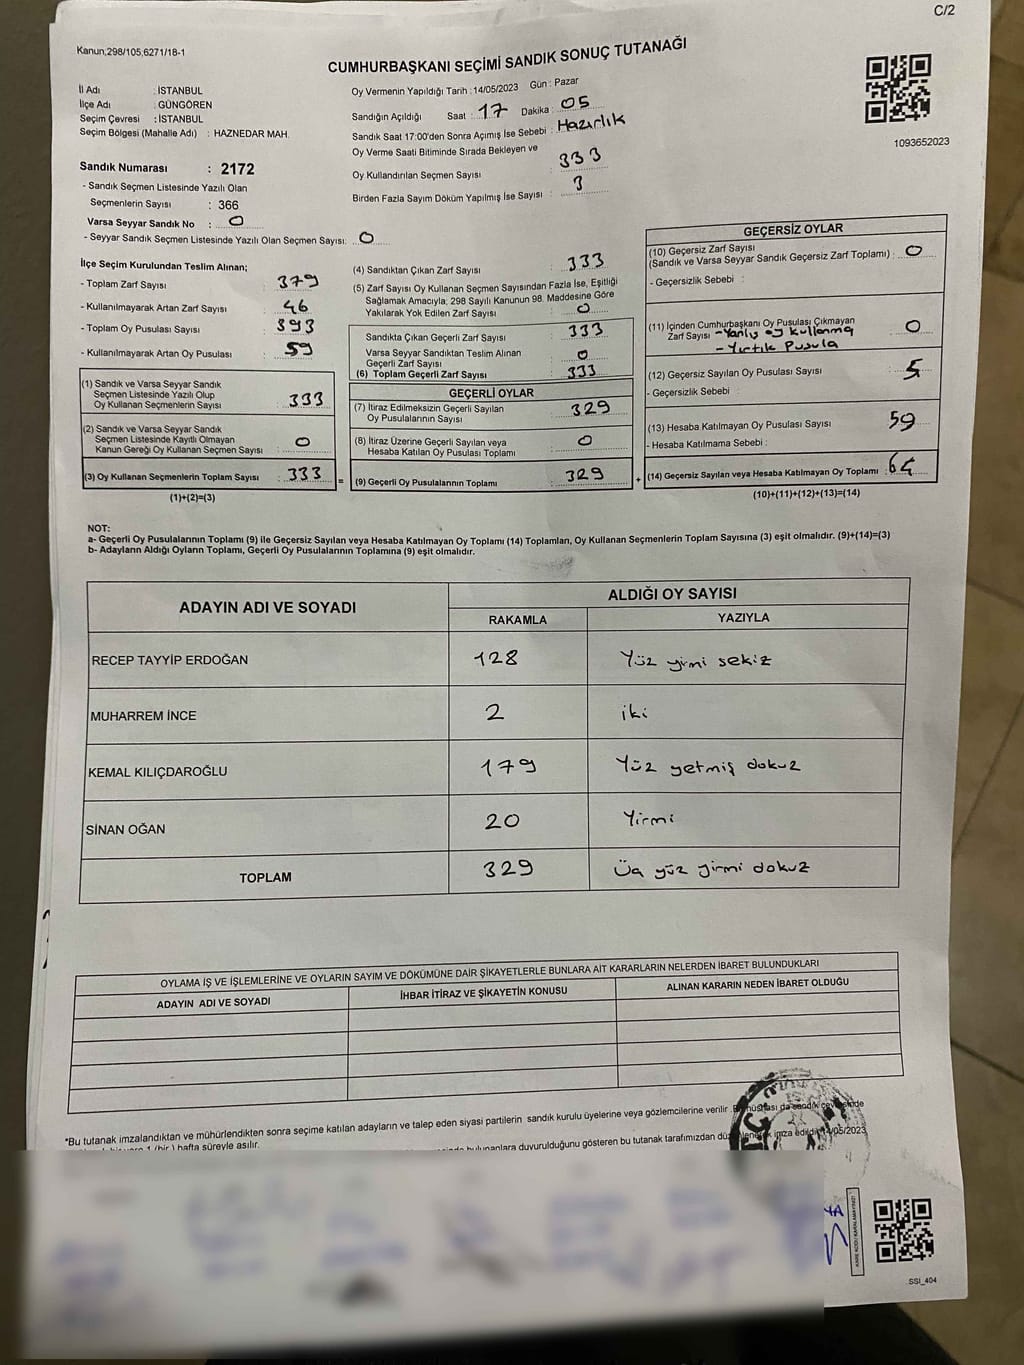 C/2
Kanun;298/105,6271/18-1
CUMHURBAŞKANI SEÇİMİ SANDIK SONUÇ TUTANAĞI
İl Adı : İSTANBUL
İlçe Adı : GÜNGÖREN
Seçim Çevresi : İSTANBUL
Seçim Bölgesi (Mahalle Adı) : HAZNEDAR MAH.
Oy Vermenin Yapıldığı Tarih : 14/05/2023 Gün : Pazar
Sandığın Açıldığı Saat : 17 Dakika : 05
Sandık Saat 17:00'den Sonra Açımış İse Sebebi : Hazırlık
Oy Verme Saati Bitiminde Sırada Bekleyen ve
Oy Kullandırılan Seçmen Sayısı : 333
Birden Fazla Sayım Döküm Yapılmış İse Sayısı : 3
1093652023
Sandık Numarası : 2172
- Sandık Seçmen Listesinde Yazılı Olan
Seçmenlerin Sayısı : 366
Varsa Seyyar Sandık No : 0
- Seyyar Sandık Seçmen Listesinde Yazılı Olan Seçmen Sayısı: 0
İlçe Seçim Kurulundan Teslim Alınan;
- Toplam Zarf Sayısı : 379
- Kullanılmayarak Artan Zarf Sayısı : 46
- Toplam Oy Pusulası Sayısı : 393
- Kullanılmayarak Artan Oy Pusulası : 59
(1) Sandık ve Varsa Seyyar Sandık
Seçmen Listesinde Yazılı Olup
Oy Kullanan Seçmenlerin Sayısı : 333
(2) Sandık ve Varsa Seyyar Sandık
Seçmen Listesinde Kayıtlı Olmayan
Kanun Gereği Oy Kullanan Seçmen Sayısı : 0
(3) Oy Kullanan Seçmenlerin Toplam Sayısı : 333 =
(1)+(2)=(3)
(4) Sandıktan Çıkan Zarf Sayısı : 333
(5) Zarf Sayısı Oy Kullanan Seçmen Sayısından Fazla İse, Eşitliği
Sağlamak Amacıyla, 298 Sayılı Kanunun 98. Maddesine Göre
Yakılarak Yok Edilen Zarf Sayısı : 0
Sandıkta Çıkan Geçerli Zarf Sayısı : 333
Varsa Seyyar Sandıktan Teslim Alınan
Geçerli Zarf Sayısı : 0
(6) Toplam Geçerli Zarf Sayısı : 333
GEÇERLİ OYLAR
(7) İtiraz Edilmeksizin Geçerli Sayılan
Oy Pusulalarının Sayısı : 329
(8) İtiraz Üzerine Geçerli Sayılan veya
Hesaba Katılan Oy Pusulası Toplamı : 0
(9) Geçerli Oy Pusulalarının Toplamı : 329 +
GEÇERSİZ OYLAR
(10) Geçersiz Zarf Sayısı
(Sandık ve Varsa Seyyar Sandık Geçersiz Zarf Toplamı) : 0
- Geçersizlik Sebebi :
(11) İçinden Cumhurbaşkanı Oy Pusulası Çıkmayan
Zarf Sayısı : 0
- Yanlış oy kullanma
- Yırtık Pusula
(12) Geçersiz Sayılan Oy Pusulası Sayısı : 5
- Geçersizlik Sebebi :
(13) Hesaba Katılmayan Oy Pusulası Sayısı : 59
- Hesaba Katılmama Sebebi :
(14) Geçersiz Sayılan veya Hesaba Katılmayan Oy Toplamı : 64
(10)+(11)+(12)+(13)=(14)
NOT:
a- Geçerli Oy Pusulalarının Toplamı (9) ile Geçersiz Sayılan veya Hesaba Katılmayan Oy Toplamı (14) Toplamları, Oy Kullanan Seçmenlerin Toplam Sayısına (3) eşit olmalıdır. (9)+(14)=(3)
b- Adayların Aldığı Oyların Toplamı, Geçerli Oy Pusulalarının Toplamına (9) eşit olmalıdır.
ADAYIN ADI VE SOYADI ALDIĞI OY SAYISI
RAKAMLA YAZIYLA
RECEP TAYYİP ERDOĞAN 128 Yüz yirmi sekiz
MUHARREM İNCE 2 iki
KEMAL KILIÇDAROĞLU 179 Yüz yetmiş dokuz
SİNAN OĞAN 20 Yirmi
TOPLAM 329 Üç yüz yirmi dokuz
OYLAMA İŞ VE İŞLEMLERİNE VE OYLARIN SAYIM VE DÖKÜMÜNE DAİR ŞİKAYETLERLE BUNLARA AİT KARARLARIN NELERDEN İBARET BULUNDUKLARI
ADAYIN ADI VE SOYADI İHBAR İTİRAZ VE ŞİKAYETİN KONUSU ALINAN KARARIN NEDEN İBARET OLDUĞU
*Bu tutanak imzalandıktan ve mühürlendikten sonra seçime katılan adayların ve talep eden siyasi partilerin sandık kurulu üyelerine veya gözlemcilerine verilir. Bir nüshası da sandık çevresinde
1 (bir) hafta süreyle asılır.
bulunanlara duyurulduğunu gösteren bu tutanak tarafımızdan düzenlenerek imza edildi. 14/05/2023
SSI_404